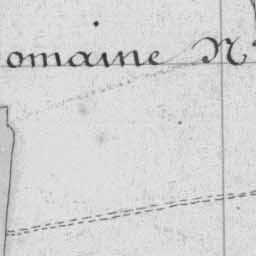 omaine N